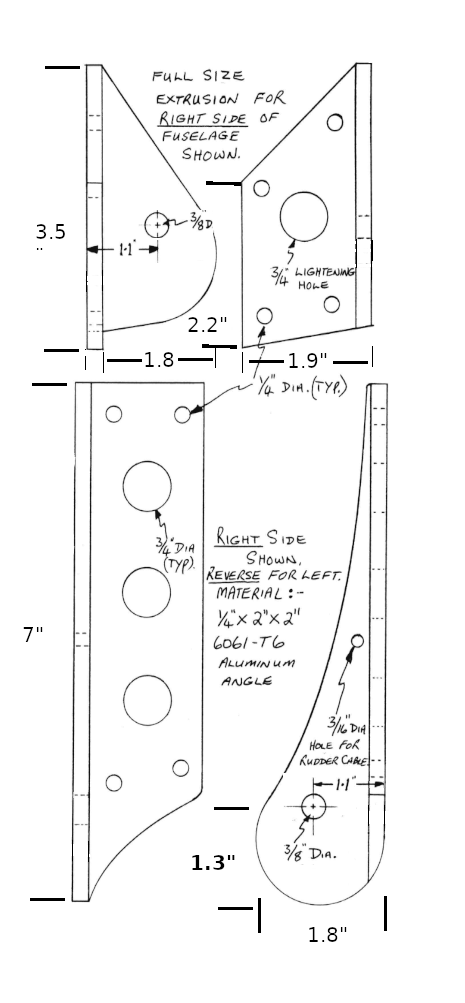 FULL SIZE
EXTRUSION FOR
RIGHT SIDE OF
FUSELAGE
SHOWN.
3.5
"
3/8D"
1·1"
3/4" LIGHTENING
HOLE
2.2"
1.8
1.9"
1/4" DIA.(TYP.)
3/4" DIA
(TYP).
RIGHT SIDE
SHOWN,
REVERSE FOR LEFT.
MATERIAL:-
1/4" X 2" X 2"
6061-T6
ALUMINUM
ANGLE
7"
3/16" DIA
HOLE FOR
RUDDER CABLE.
1·1"
3/8" DIA.
1.3"
1.8"